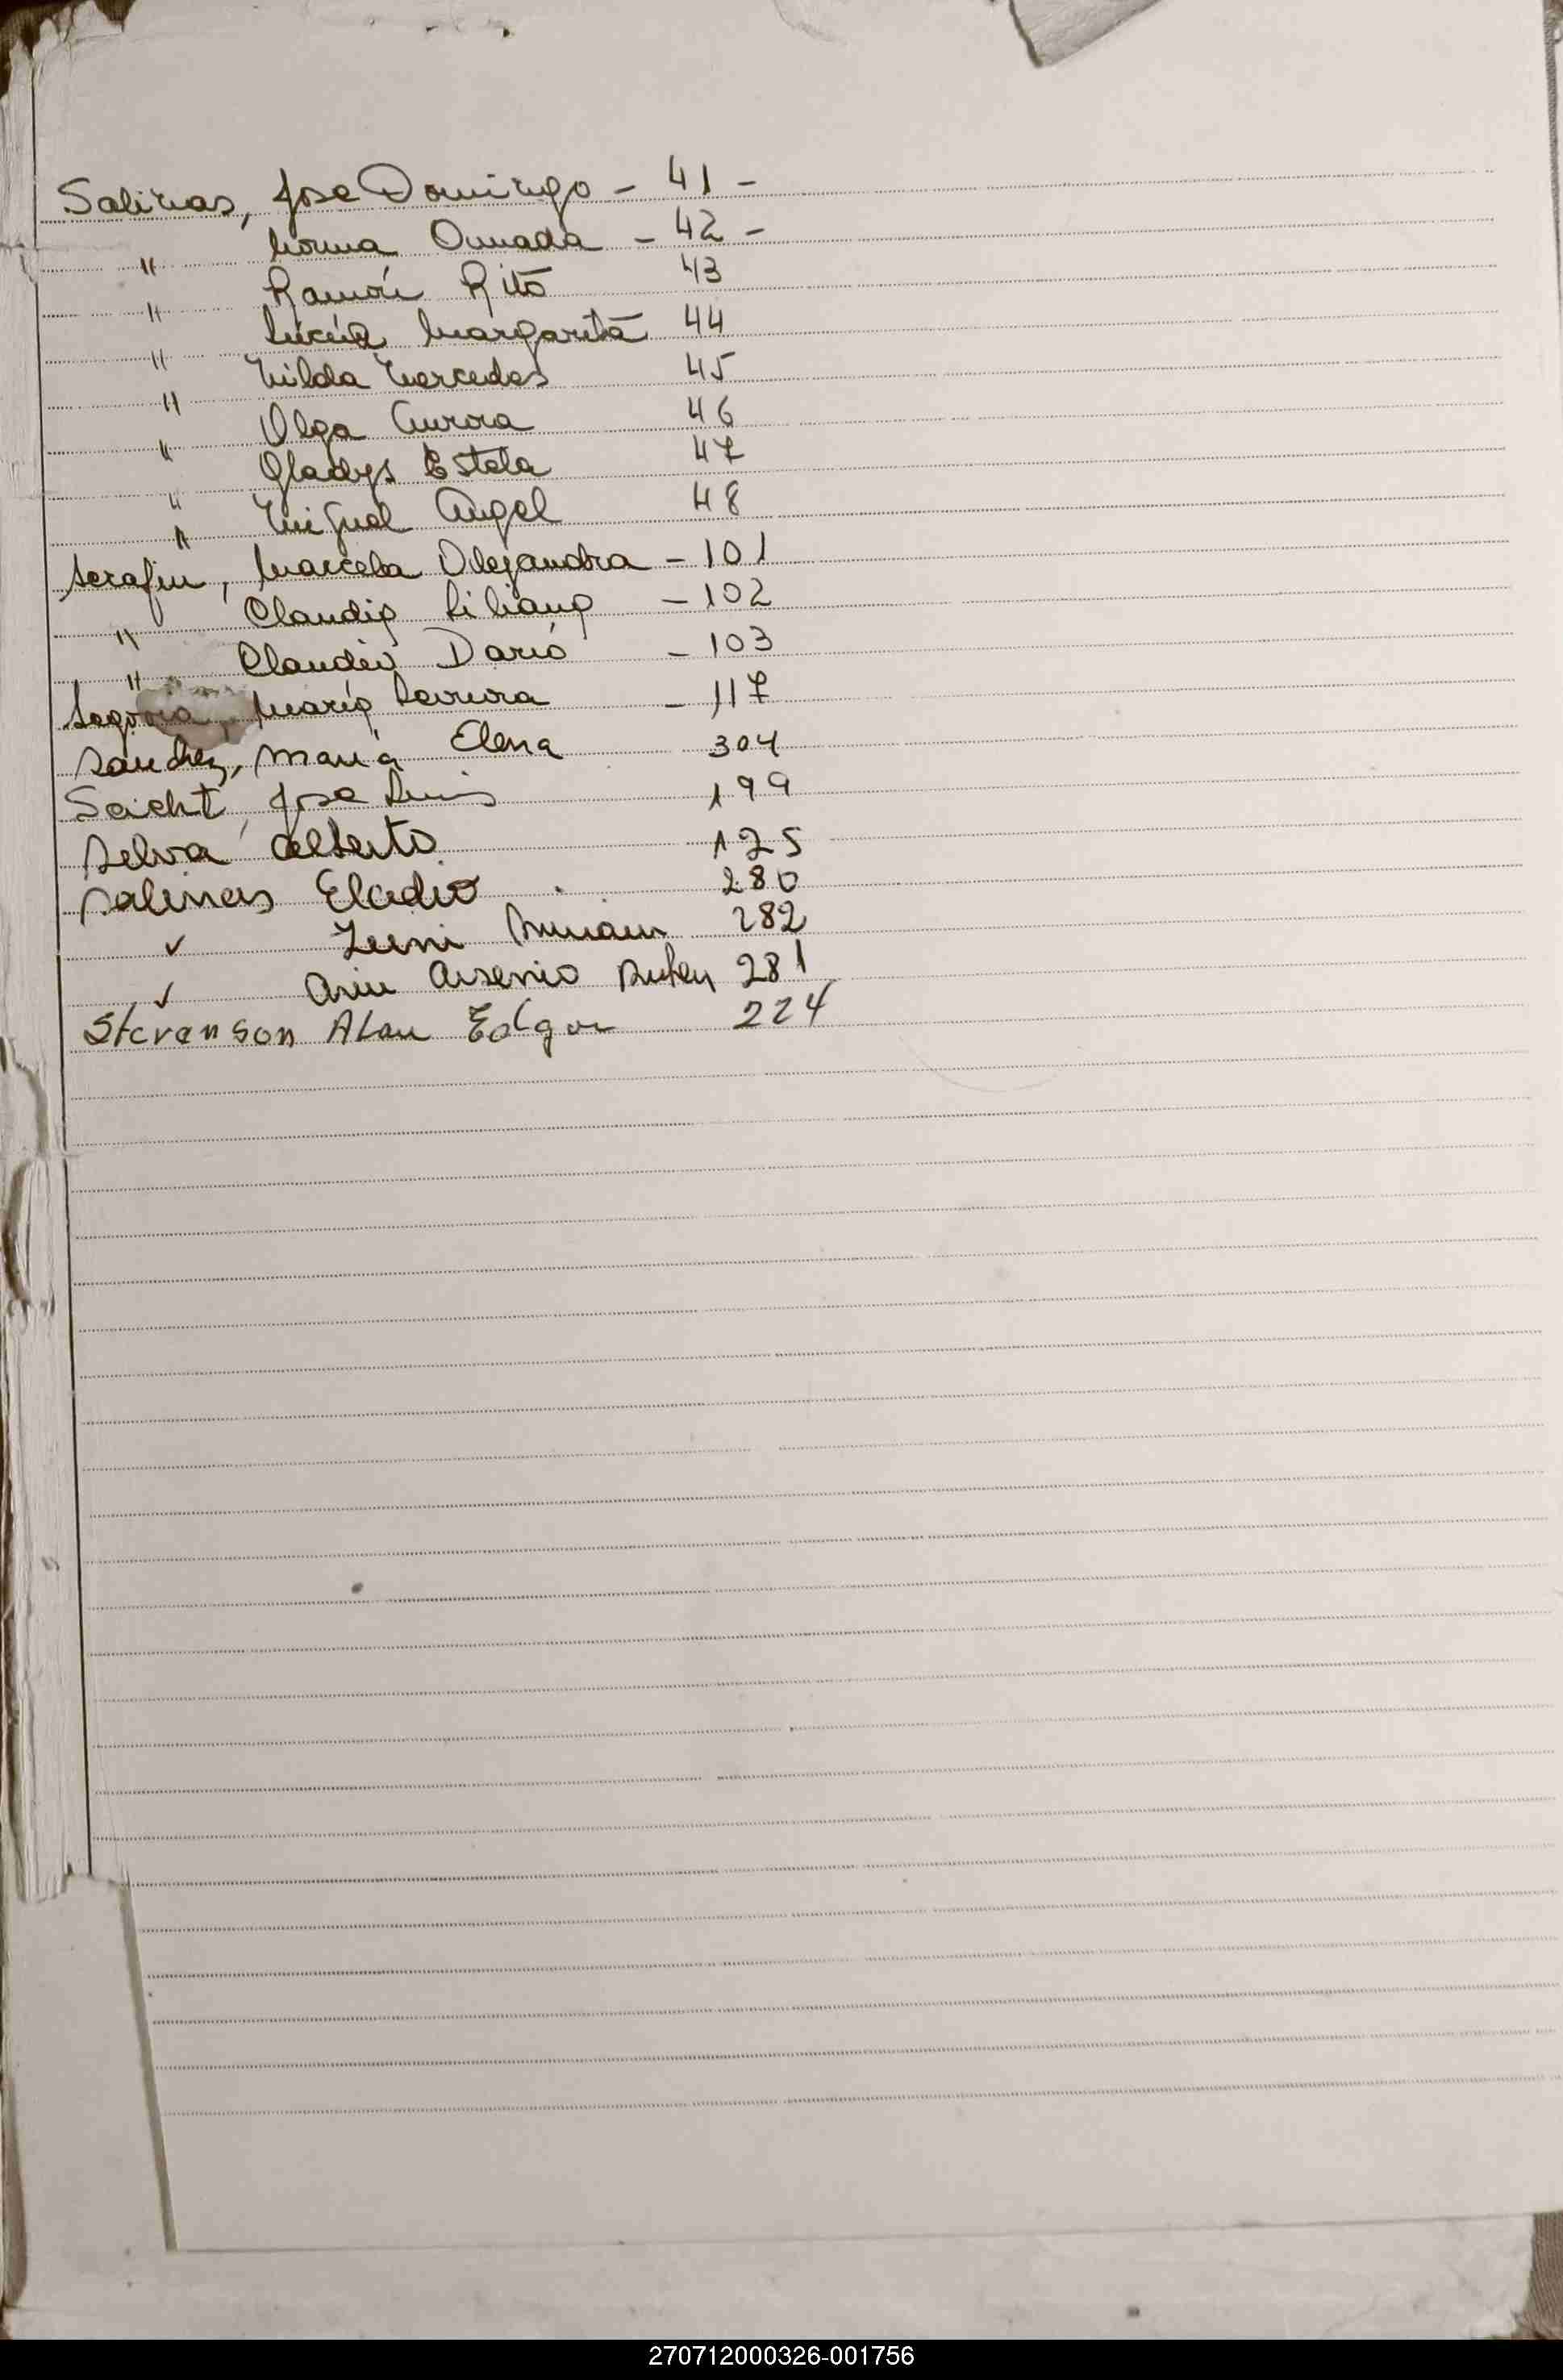 Salinas, Jose Domingo - 41 -
" Norma Amada - 42 -
" Ramón Rito 43
" Lucía Margarita 44
" Nilda Mercedes 45
" Olga Aurora 46
" Gladys Estela 47
" Miguel Angel 48
Serafin, Marcela Alejandra - 101
" Claudia Liliana - 102
" Claudio Dario - 103
Segovia, María - 117
Sanchez, María Elena 304
Seicht, Jose Luis 199
Selva Alberto 125
Salinas Eladio 280
✓ Miriam 282
✓ Arsenio Ruben 281
Stevenson Alan Edgar 224
270712000326-001756